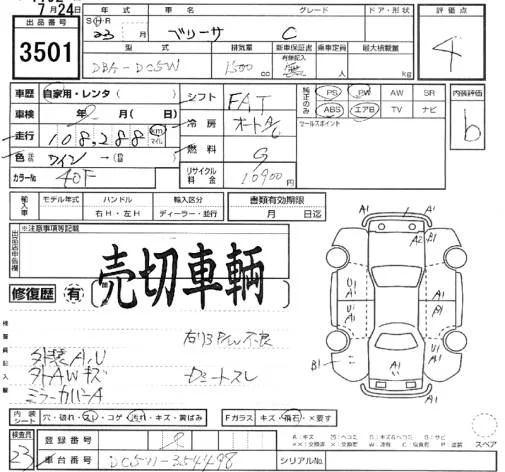 7月24日
出品番号 3501
年式 グレード ドア・形状 評価点
S H R 23 月 ベリーサ C 4
型式 排気量 新車保証書 乗車定員 最大積載量
有無記入
DBA-DC5W 1500 cc 無 人 kg
車歴 自家用・レンタ( ) シフト FAT 純正のみ PS PW AW SR 内装評価
車検 年 月( 日) 冷房 オートA/C ABS エアB TV ナビ b
走行 108,288 km マイル 燃料 G セールスポイント
色 ワイン リサイクル料金 10900 円
カラーNo 40F
輸入車 モデル年式 ハンドル 輸入区分 書類有効期限
右H・左H ディーラー・並行 月 日迄
出品店申告欄 ※注意事項等記載
売切車両
修復歴 有
検査員記入欄
右リヤP/W不良
外装A,U
外AWキズ シートスレ
ミラーカバーA
A1 A1 A2 B1 U1 A1 U1 A1 B1 A1 A1
内装シート 穴・破れ・スレ・コゲ・汚れ・キズ・黄ばみ Fガラス キズ・飛石・×要す
検査員 23 登録番号 スペア
車台番号 DC5W-354498 シリアルNo.